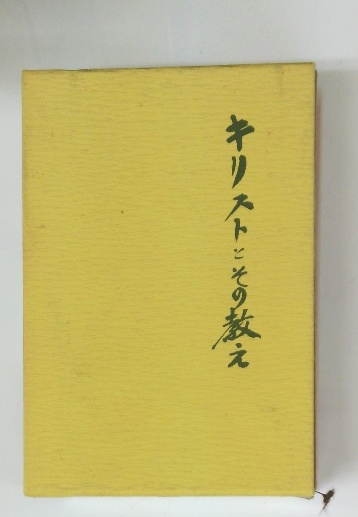 キリストとその教え